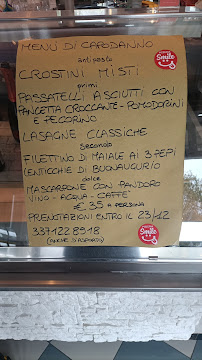 MENU DI CAPODANNO
antipasto
CROSTINI MISTI
primi
PASSATELLI ASCIUTTI CON
PANCETTA CROCCANTE - POMODORINI
E PECORINO
LASAGNE CLASSICHE
Secondo
FILETTINO DI MAIALE AI 3 PEPI
LENTICCHIE DI BUONAUGURIO
dolce
MASCARPONE CON PANDORO
VINO - ACQUA - CAFFE'
€ 35 A PERSONA
PRENOTAZIONI ENTRO IL 23/12
3371228918
(ANCHE D'ASPORTO)
Smile
Smile